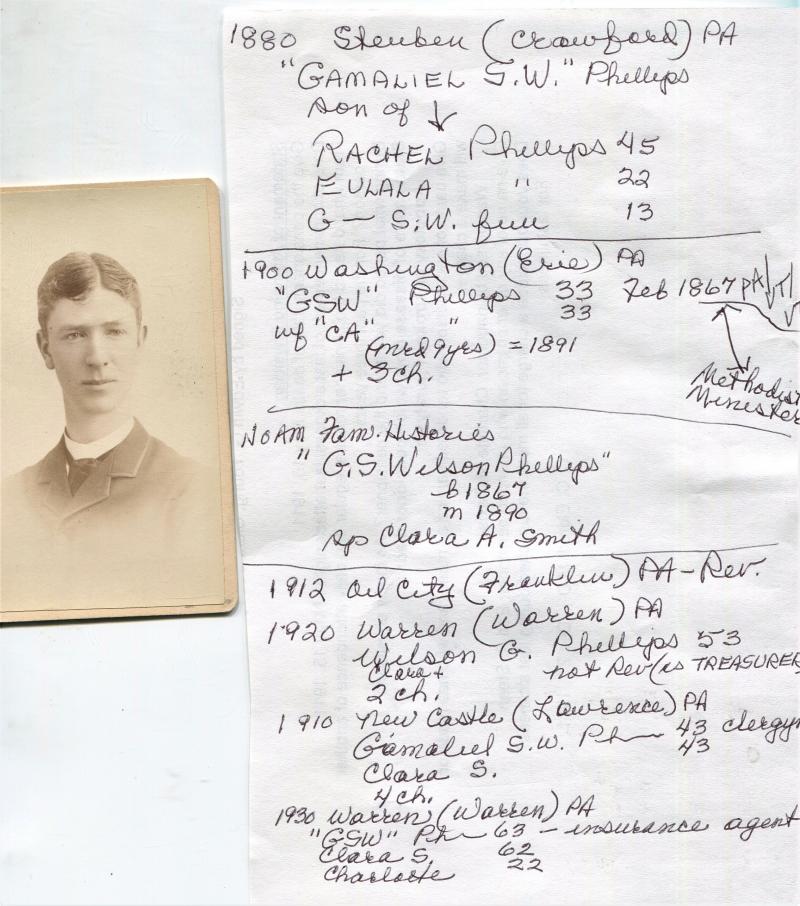 1880 Steuben (Crawford) PA
"GAMALIEL S.W." Phillips
son of
RACHEL Phillips 45
EULALA " 22
G— S.W. 13
1900 Washington (Erie) PA
"GSW" Phillips 33 Feb 1867 PA
wf "CA" " 33
(mrd 9 yrs) = 1891
+ 3 ch.
Methodist
Minister
NOAM Fam. Histories
"G.S. Wilson Phillips"
b 1867
m 1890
sp Clara A. Smith
1912 Oil City (Franklin) PA - Rev.
1920 Warren (Warren) PA
Wilson G. Phillips 53
Clara + not Rev (is TREASURER
2 ch.
1910 New Castle (Lawrence) PA
Gamaliel S.W. Ph— 43 clergym
Clara S. 43
4 ch.
1930 Warren (Warren) PA
"GSW" Ph— 63 - insurance agent
Clara S. 62
Charlotte 22